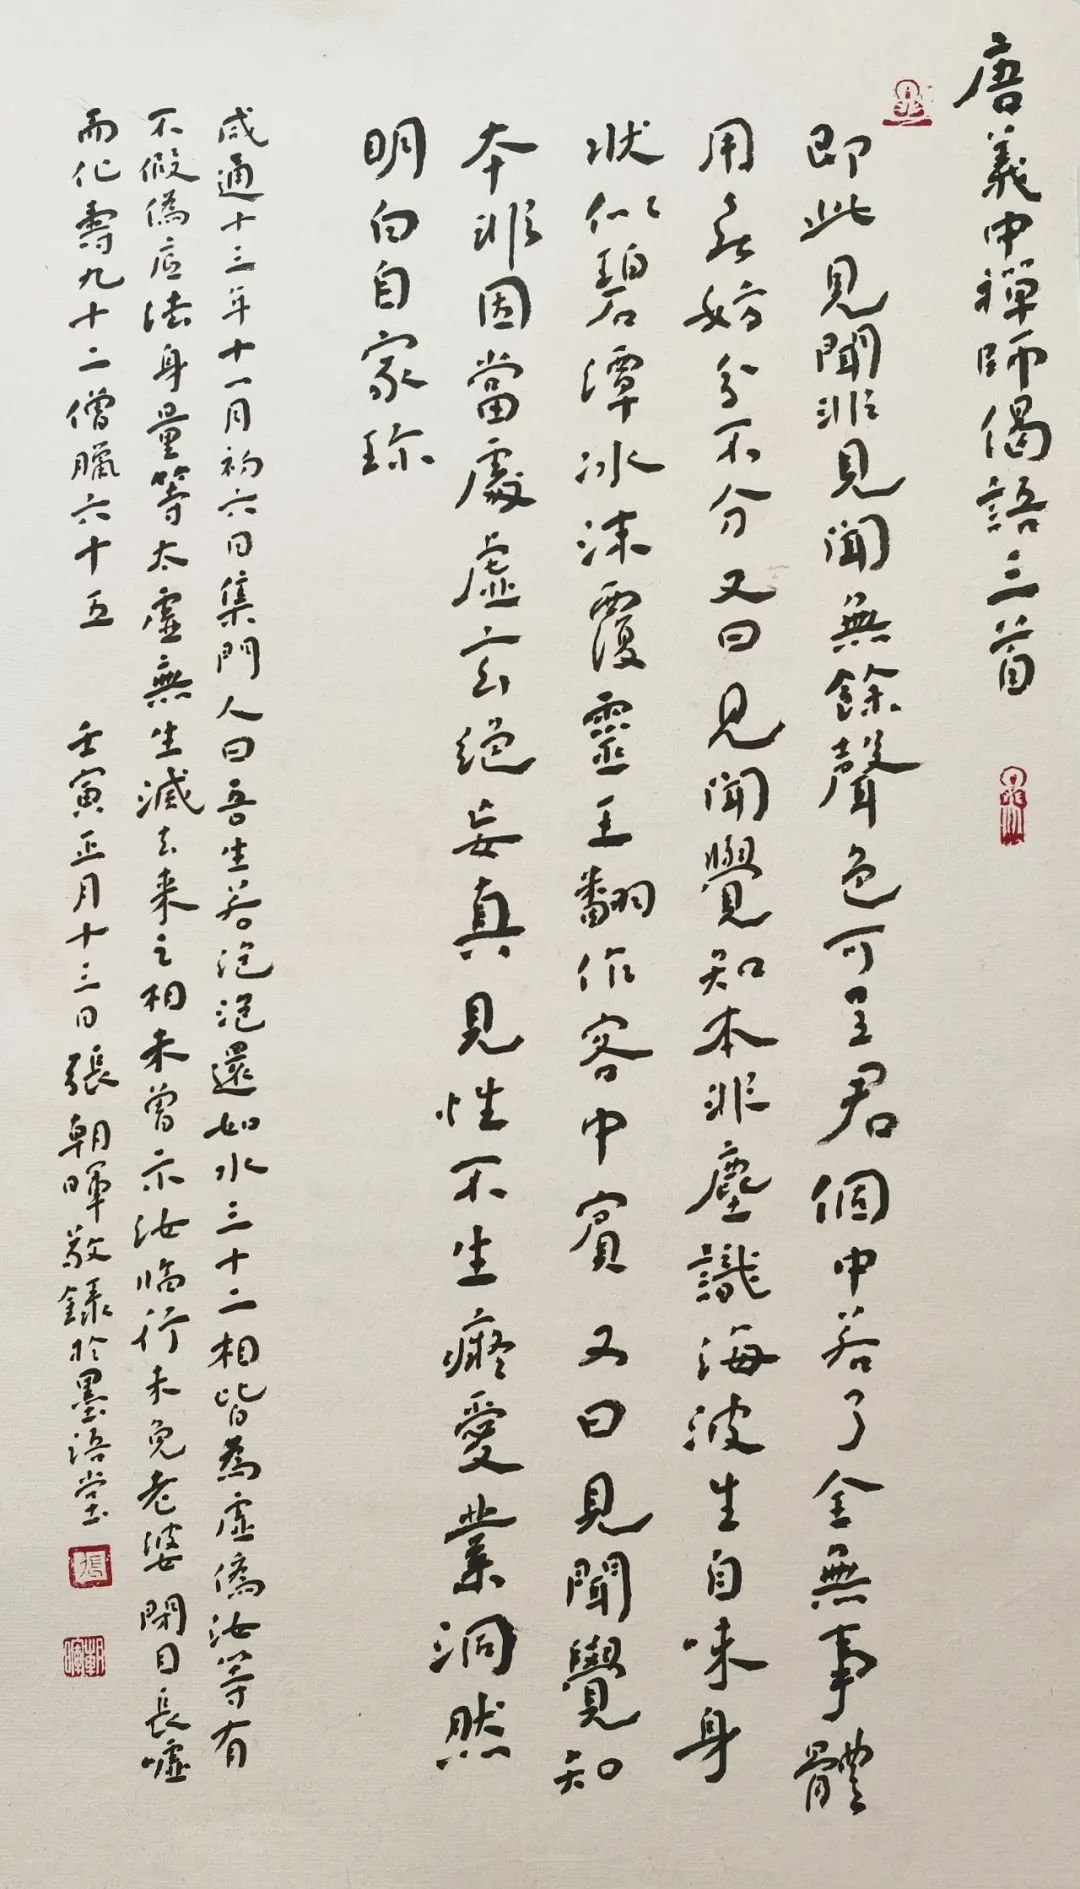 唐義中禪師偈語三首
即此見聞非見聞無餘聲色可呈君個中若了全無事體
用無妨分不分又曰見聞覺知本非塵識海波生自昧身
狀似碧潭冰沫覆靈王翻作客中賓又曰見聞覺知
本非因當處虛玄絕妄真見性不生癡愛業洞然
明白自家珍
咸通十三年十一月初六日集門人曰吾生若泡泡還如水三十二相皆為虛僞汝等有
不假僞底法身量等太虛無生滅去来之相未曾示汝臨行未免老婆閉目長噓
而化壽九十二僧臘六十五 壬寅正月十三日張朝暉敬錄於墨語堂